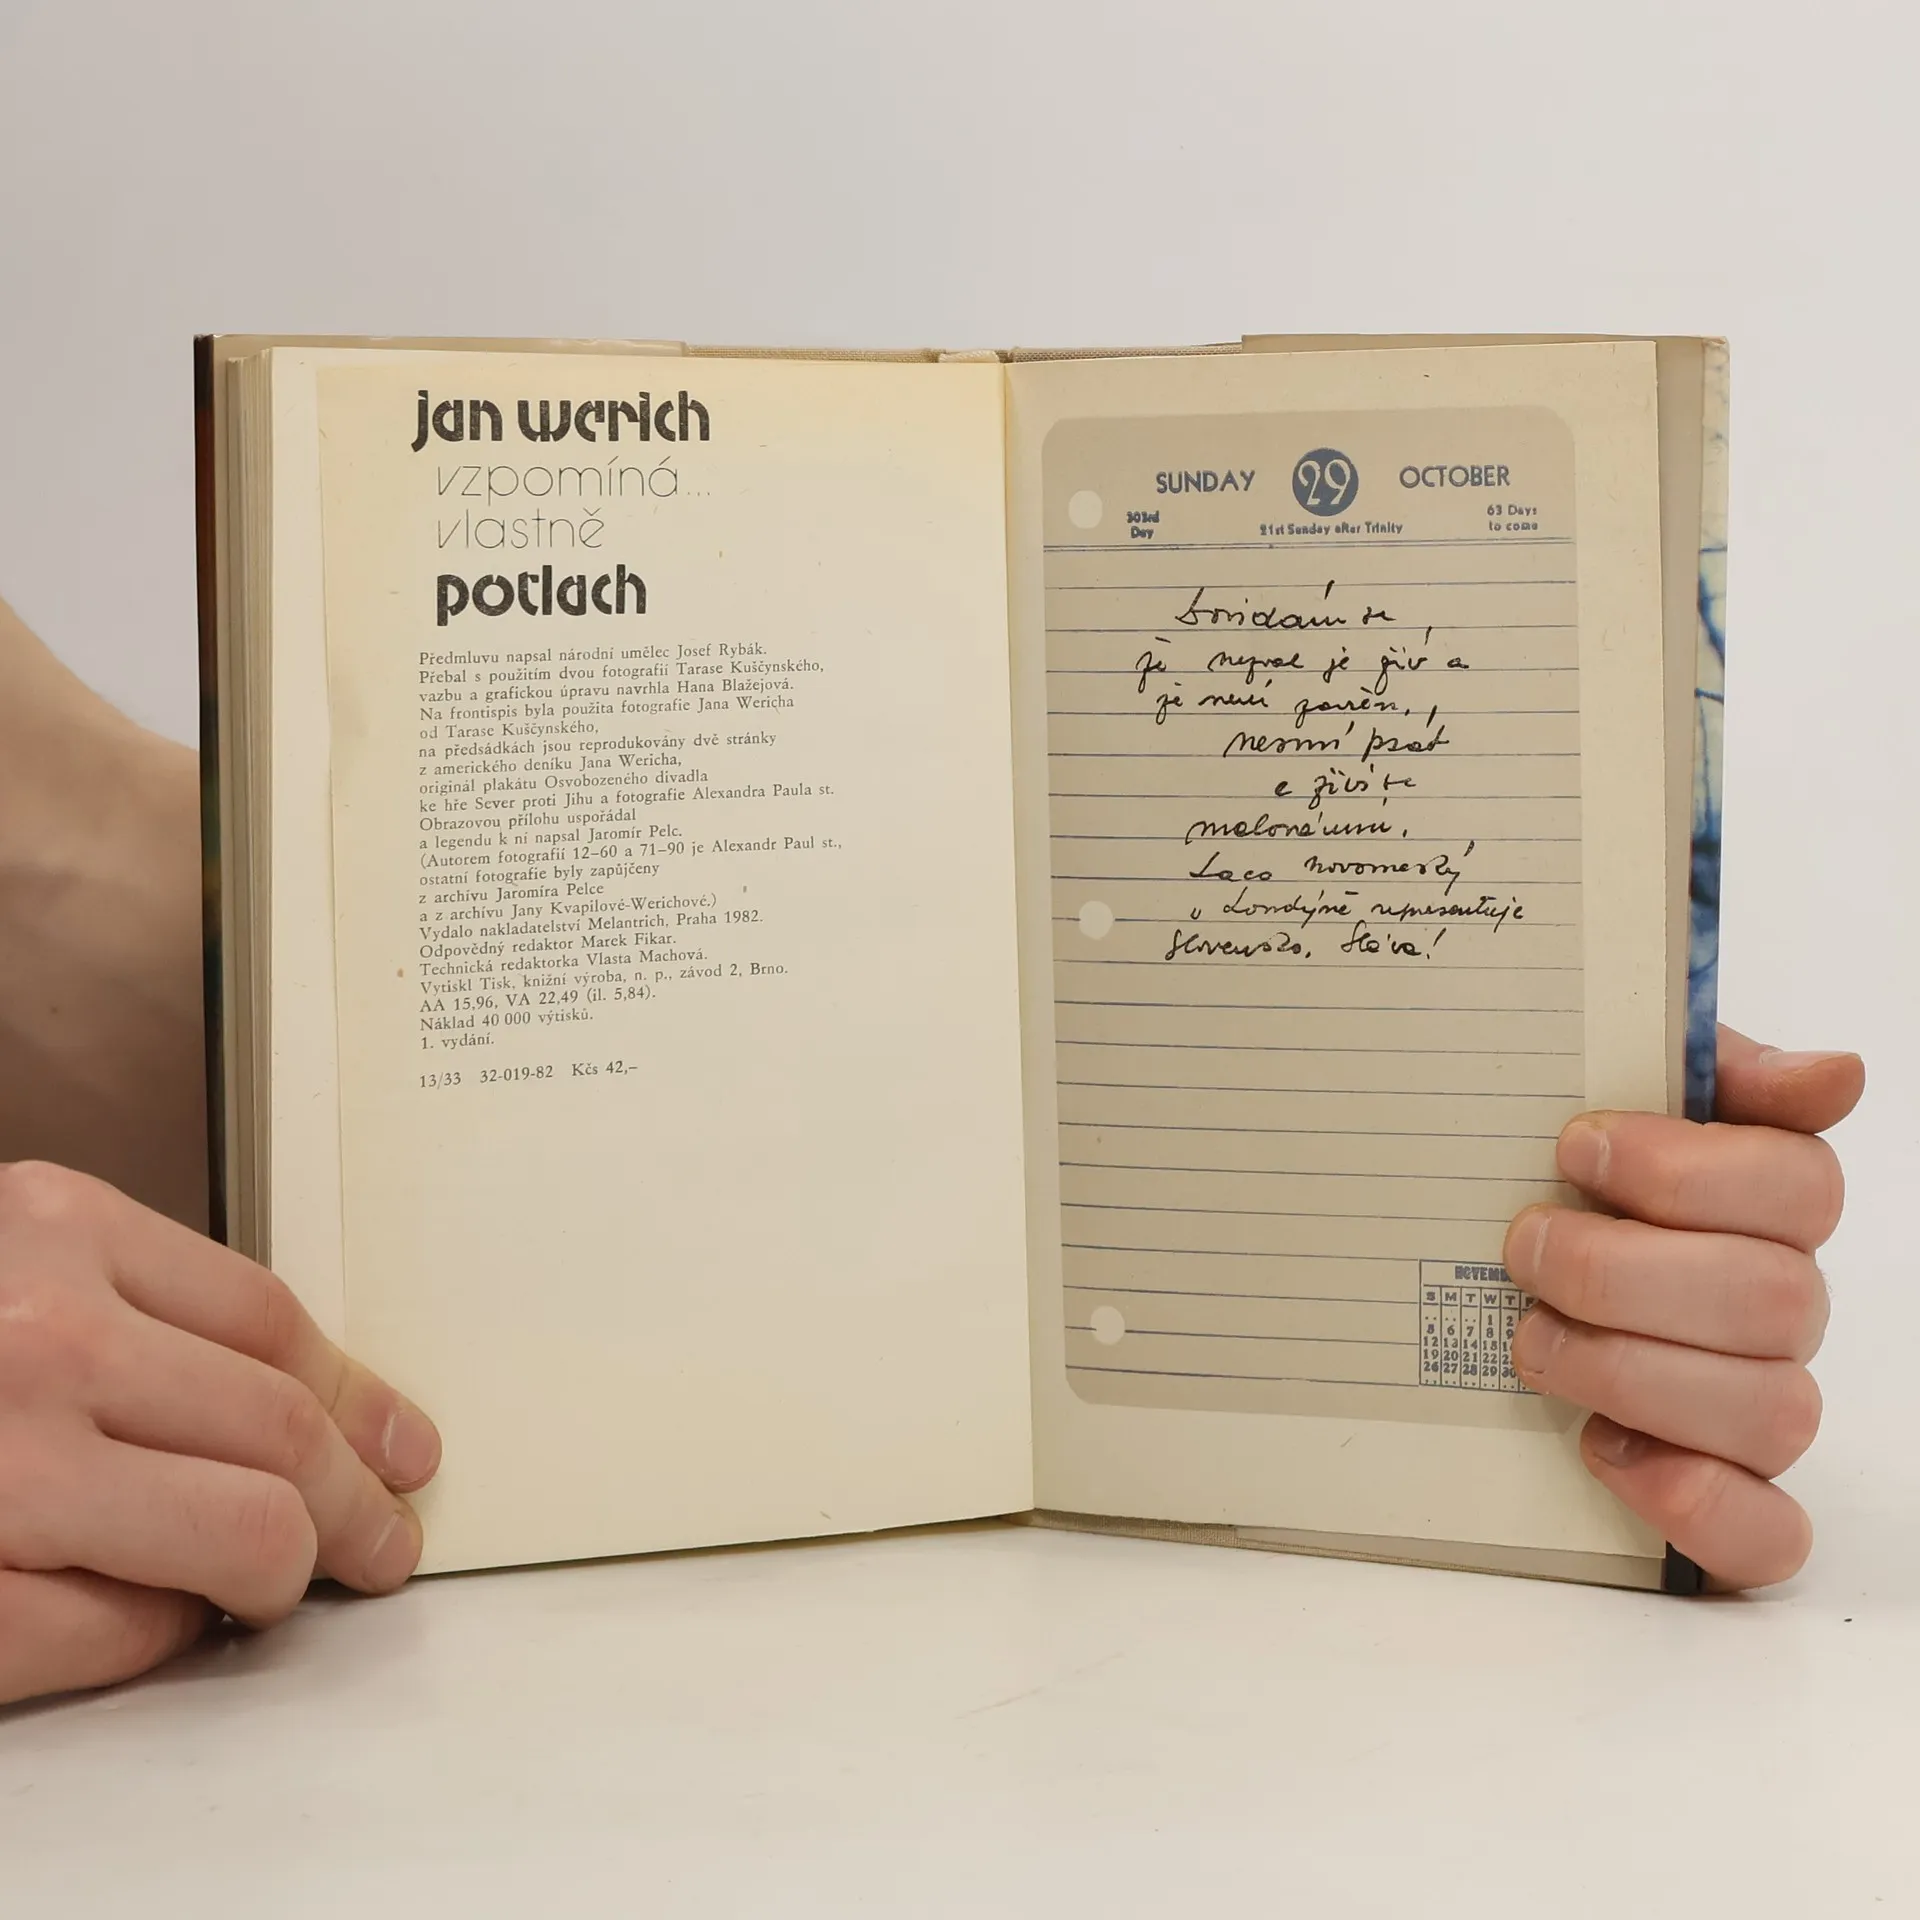 jan werich
vzpomíná...
vlastně
potlach
Předmluvu napsal národní umělec Josef Rybák.
Přebal s použitím dvou fotografií Tarase Kuščynského,
vazbu a grafickou úpravu navrhla Hana Blažejová.
Na frontispis byla použita fotografie Jana Wericha
od Tarase Kuščynského,
na předsádkách jsou reprodukovány dvě stránky
z amerického deníku Jana Wericha,
originál plakátu Osvobozeného divadla
ke hře Sever proti Jihu a fotografie Alexandra Paula st.
Obrazovou přílohu uspořádal
a legendu k ní napsal Jaromír Pelc.
(Autorem fotografií 12–60 a 71–90 je Alexandr Paul st.,
ostatní fotografie byly zapůjčeny
z archívu Jaromíra Pelce
a z archívu Jany Kvapilové-Werichové.)
Vydalo nakladatelství Melantrich, Praha 1982.
Odpovědný redaktor Marek Fikar.
Technická redaktorka Vlasta Machová.
Vytiskl Tisk, knižní výroba, n. p., závod 2, Brno.
AA 15,96, VA 22,49 (il. 5,84).
Náklad 40 000 výtisků.
1. vydání.
13/33 32-019-82 Kčs 42,–
SUNDAY 29 OCTOBER
303rd Day 21st Sunday after Trinity 63 Days to come
Dovídám se,
že nezval je živ a
že není zavřen,
nesmí psát
a živí se
malováním.
Laco Novomeský
v Londýně representuje
Slovensko. Sláva!
S M T W T
1 2
5 6 7 8 9
12 13 14 15
19 20 21 22
26 27 28 29 30